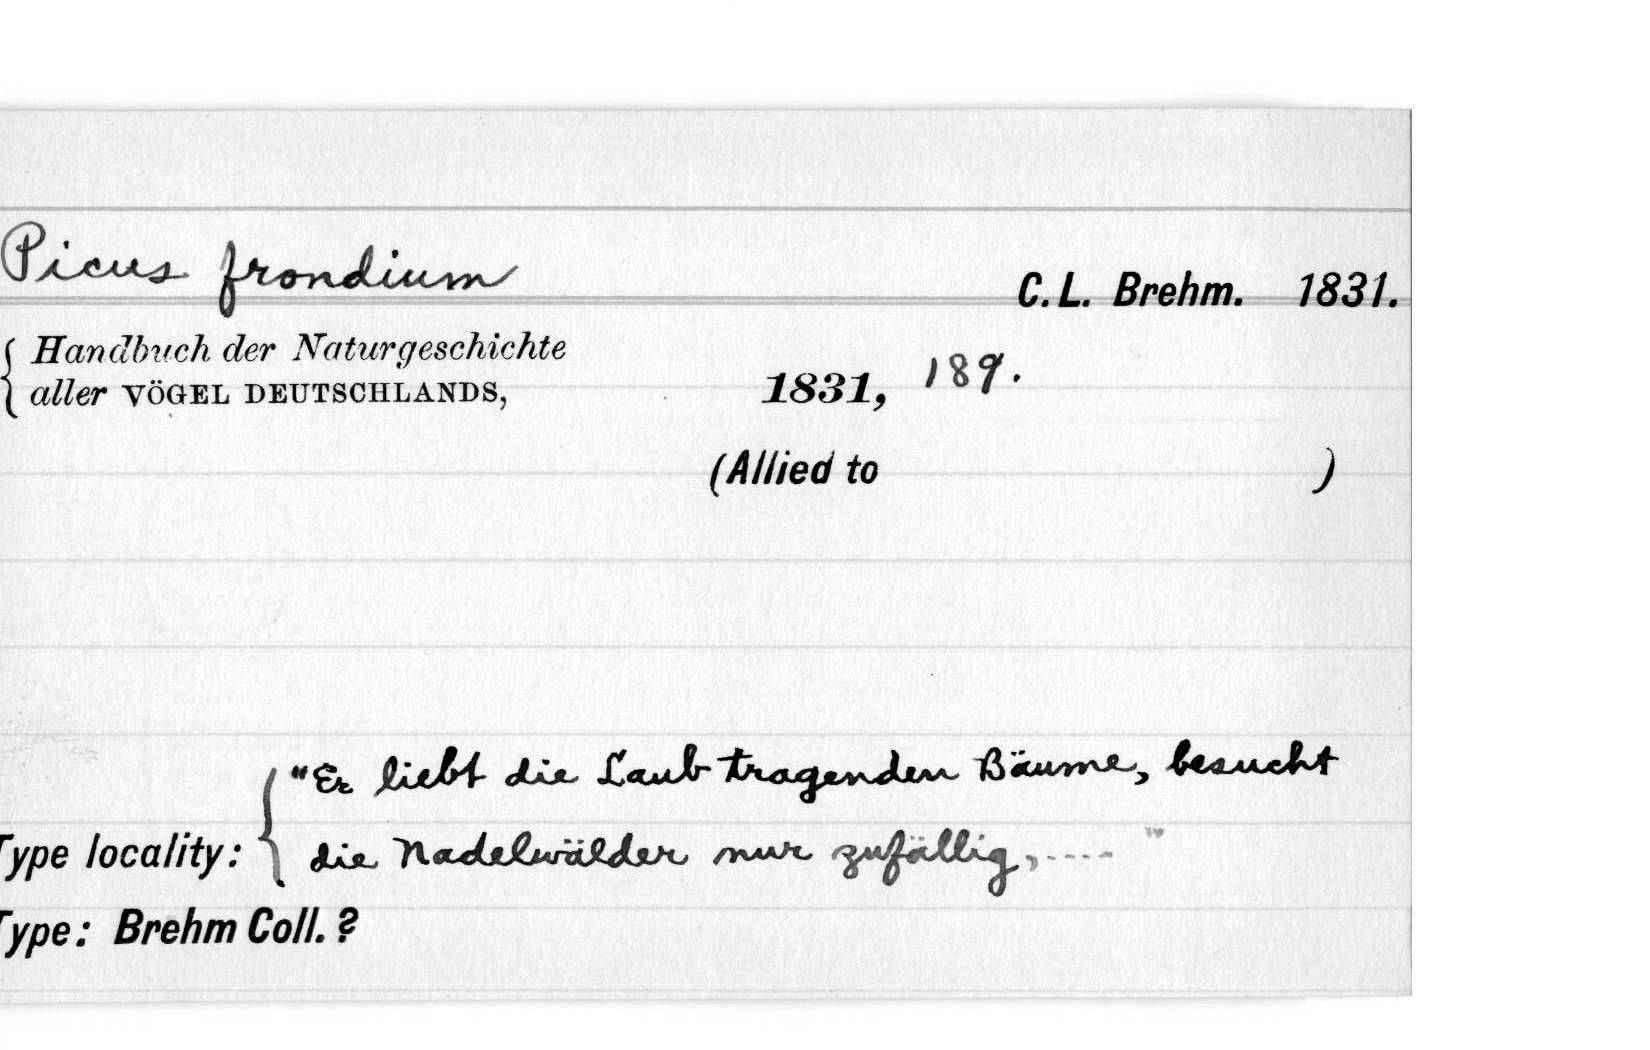 Picus frondium
C. L. Brehm. 1831.
Handbuch der Naturgeschichte
aller VÖGEL DEUTSCHLANDS, 1831, 189.
(Allied to )
"Er liebt die Laub tragenden Bäume, besucht
Type locality: die Nadelwälder nur zufällig, .... "
Type: Brehm Coll. ?